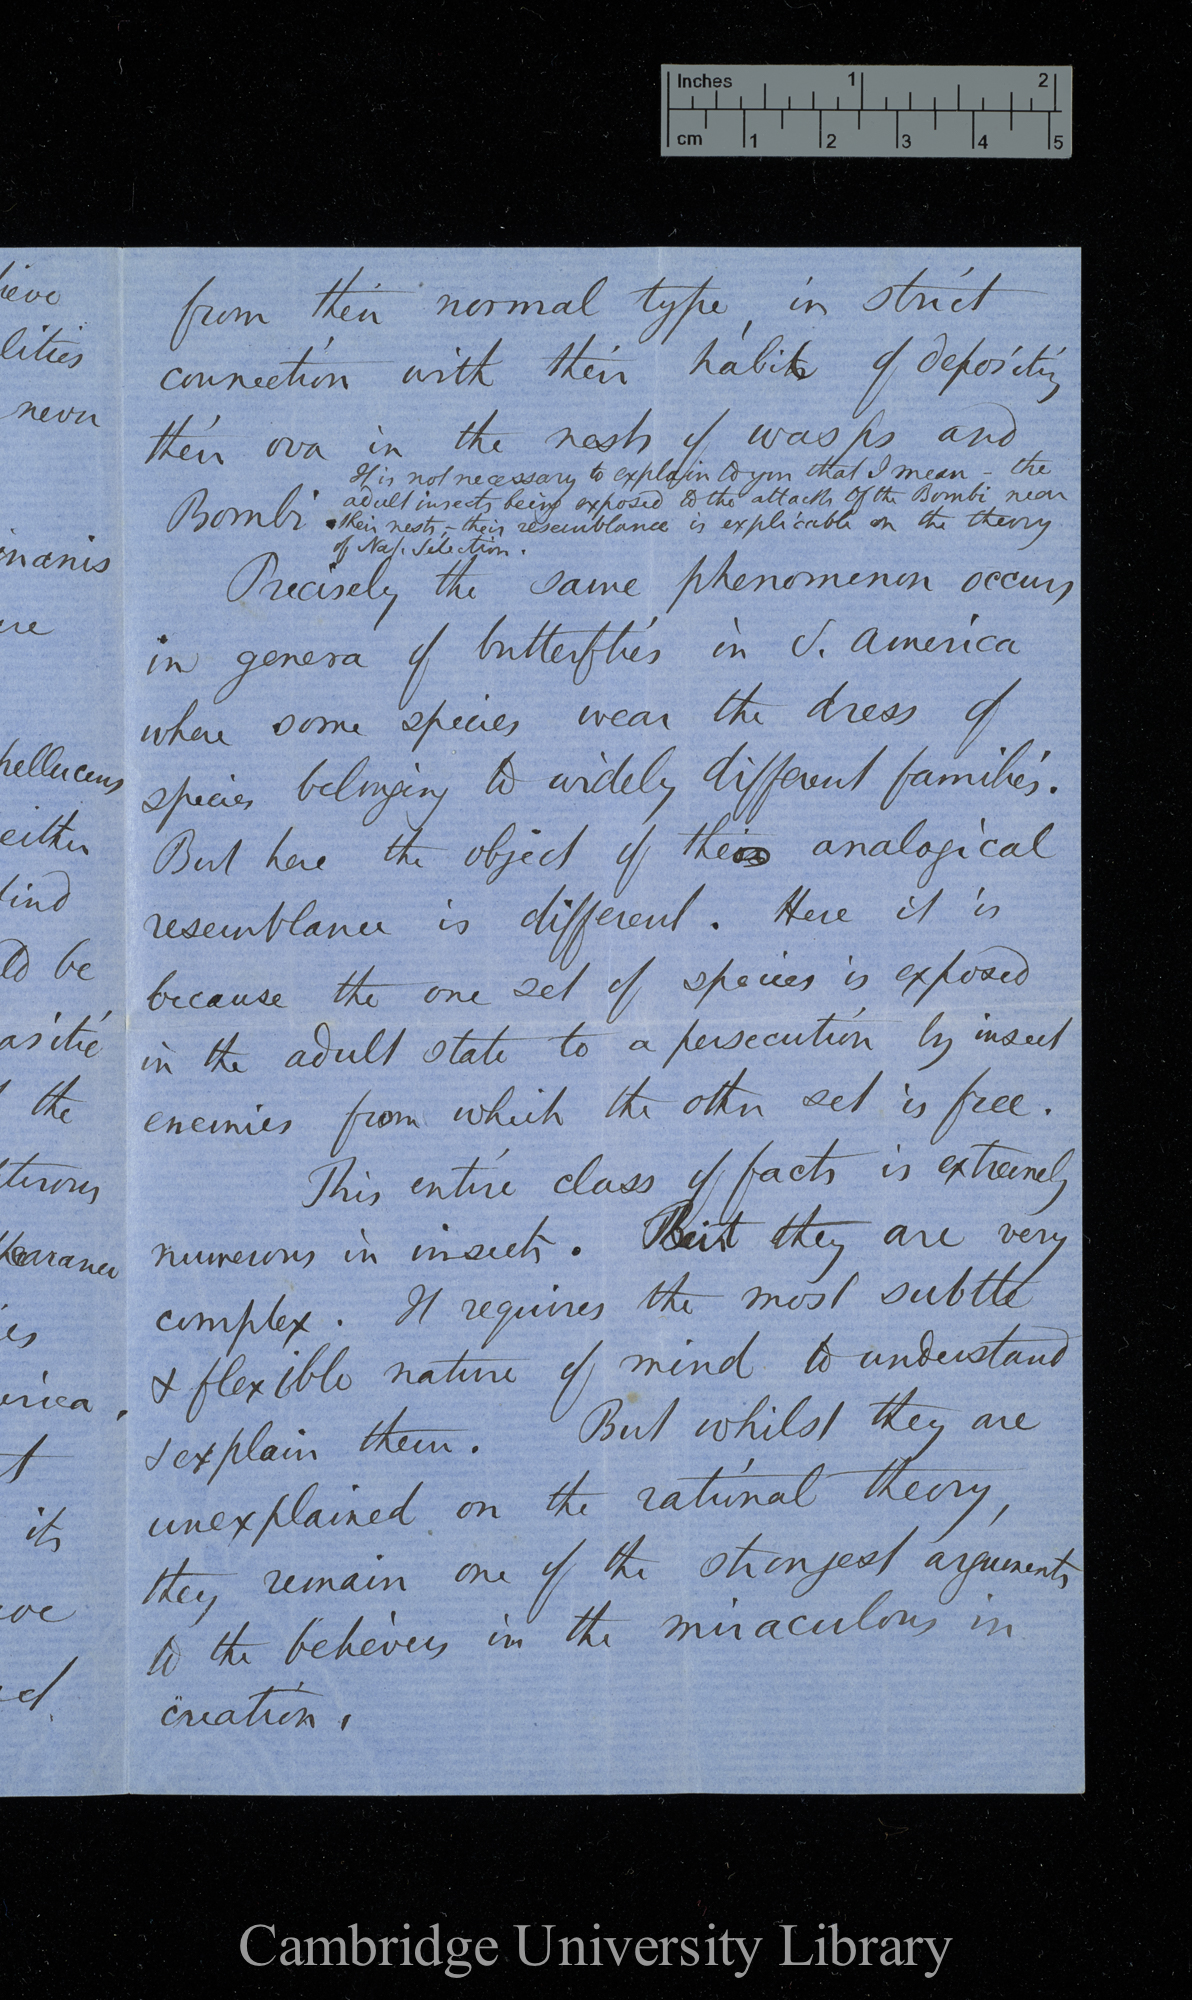 Inches 1 2
cm 1 2 3 4 5
ieve
lities
never
inanis
re
pellucens
either
ind
to be
asitic
the
pearance
ies
erica.
its
from their normal type, in strict
connection with their habits of depositing
their ova in the nests of wasps and
Bombi. It is not necessary to explain to you that I mean - the
adult insects being exposed to the attacks of the Bombi near
their nests, - their resemblance is explicable on the theory
of Nat. Selection.
Precisely the same phenomenon occurs
in genera of butterflies in S. America
where some species wear the dress of
species belonging to widely different families.
But here the object of the analogical
resemblance is different. Here it is
because the one set of species is exposed
in the adult state to a persecution by insect
enemies from which the other set is free.
This entire class of facts is extremely
numerous in insects. But they are very
complex. It requires the most subtle
& flexible nature of mind to understand
& explain them. But whilst they are
unexplained on the rational theory,
they remain one of the strongest arguments
to the believers in the miraculous in
creation.
Cambridge University Library